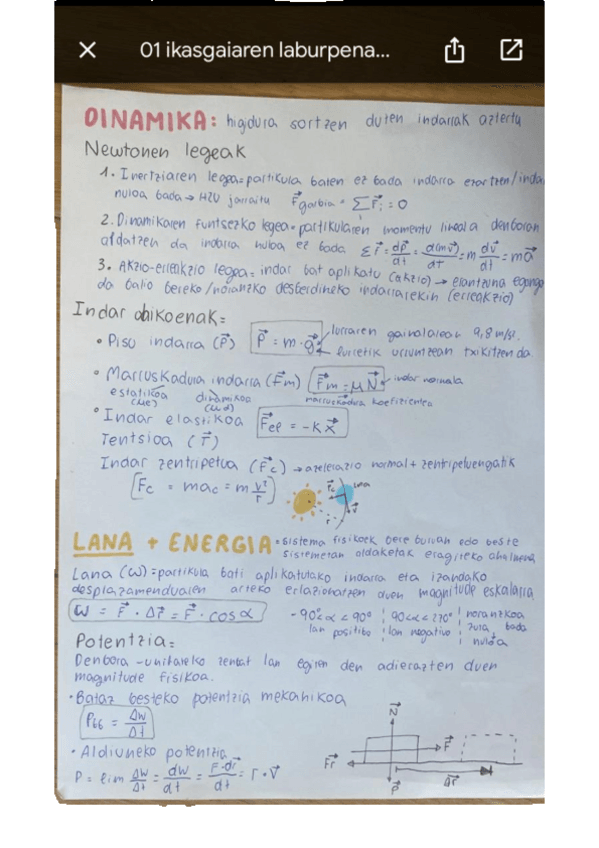 01 ikasgaiaren laburpena...
DINAMIKA: higidura sortzen duten indarrak aztertu
Newtonen legeak
1. Inertziaren legea = partikula baten ez bada indarra ezartzen / inda
nuloa bada → HZU jarraitu F⃗garbia = Σ F⃗i = 0
i
2. Dinamikaren funtsezko legea = partikularen momentu lineala denboran
aldatzen da indarra nuloa ez bada ΣF⃗ = dp⃗/dt = d(mv⃗)/dt = m dv⃗/dt = ma⃗
3. Akzio-erreakzio legea = indar bat aplikatu (akzio) → erantzuna egongo
da balio bereko / noranzko desberdineko indarrarekin (erreakzio)
Indar ohikoenak =
• Pisu indarra (P⃗) P⃗ = m · g⃗ lurraren gainazalean 9,8 m/s²
lurretik urruntzean txikitzen da
• Marruskadura indarra (F⃗m) F⃗m = μN⃗ indar normala
estatikoa (μe) dinamikoa (μd) marruskadura koefizientea
• Indar elastikoa F⃗ep = -K x⃗
Tentsioa (T⃗)
Indar zentripetua (F⃗c) → azelerazio normal + zentripetuengatik
Fc = mac = m v²/r
F⃗c
v⃗
r
LANA + ENERGIA = sistema fisikoek bere buruan edo beste
sistemetan aldaketak eragiteko ahalmena
Lana (W) = partikula bati aplikatutako indarra eta izandako
desplazamenduaren arteko erlazionatzen duen magnitude eskalarra
W = F⃗ · Δr⃗ = F⃗ · cos α
-90°<α<90° lan positibo
90<α<270° lan negatibo
noranzkoa zuta bada nuloa
Potentzia =
Denbora-unitateko zenbat lan egiten den adierazten duen
magnitude fisikoa.
• Bataz besteko potentzia mekanikoa
Pbb = ΔW/Δt
• Aldiuneko potentzia
P = lim ΔW/Δt = dW/dt = F · dr⃗/dt = F · v⃗
N⃗
F⃗
Fr
P⃗
Δr⃗